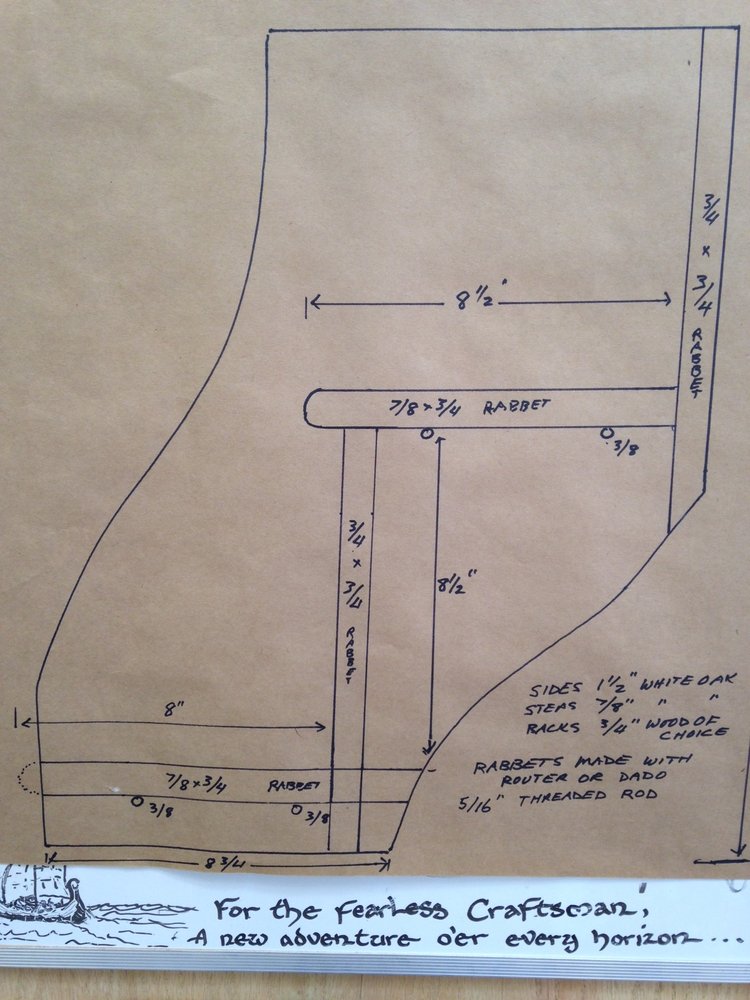 3/4 x 3/4 RABBET
8 1/2"
7/8 x 3/4 RABBET
3/8
3/4 x 3/4 RABBET
8 1/2"
8"
7/8 x 3/4 RABBET
3/8
3/8
8 3/4
SIDES 1 1/2" WHITE OAK
STEAS 7/8" " "
BACKS 3/4" WOOD OF
CHOICE
RABBETS MADE WITH
ROUTER OR DADO
5/16" THREADED ROD
For the fearless Craftsman,
A new adventure o'er every horizon...